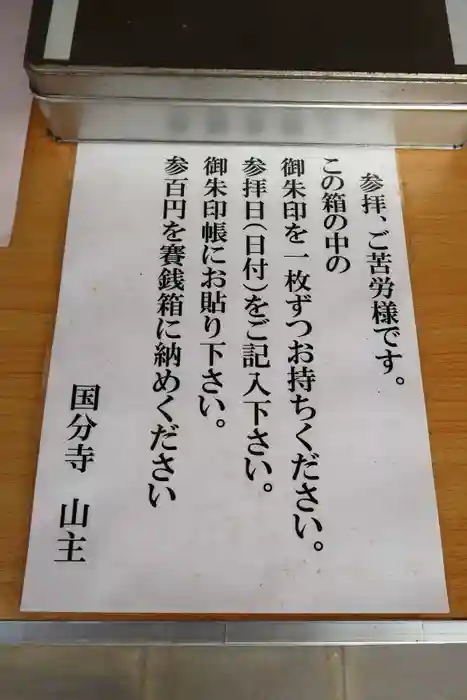 参拝、ご苦労様です。
この箱の中の
御朱印を一枚ずつお持ちください。
参拝日(日付)をご記入下さい。
御朱印帳にお貼り下さい。
参百円を賽銭箱に納めください
国分寺 山主